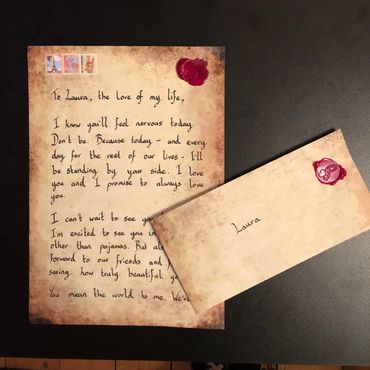 To Laura, the love of my life,
I know you'll feel nervous today.
Don't be. Because today - and every
day for the rest of our lives - I'll
be standing by your side. I love
you and I promise to always love
you.
I can't wait to see you
I'm excited to see you in
other than pajamas. But
forward to our friends and
seeing how truly beautiful
You mean the world to me.
Laura